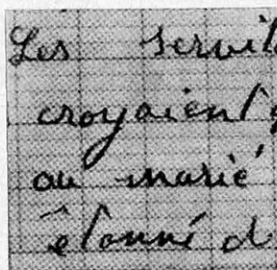 Les servit
croyaient
au marié
étonné d